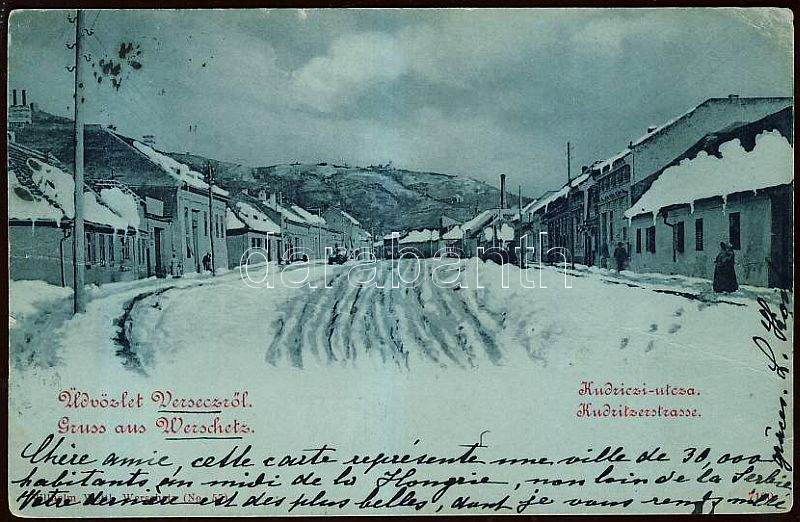 Üdvözlet Verseczről.
Gruss aus Werschetz.
Kudriczi-utcza.
Kudritzerstrasse.
darabanth
Chère amie, cette carte représente une ville de 30,000
habitants, au midi de la Hongrie, non loin de la Serbie
Votre dernière est des plus belles, dont je vous rends mille
grâces. L.
Werschetz (No.